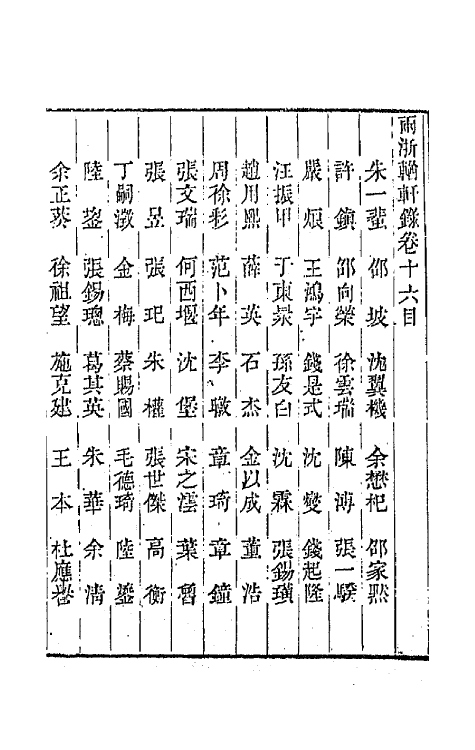 兩浙輶軒錄卷十六目
朱一蜚 邵坡 沈翼機 余懋杞 邵家㸃
許鎮 邵向榮 徐雲瑞 陳溥 張一驂
嚴烺 王鴻宇 錢是式 沈燮 錢起隆
汪振甲 于東㫤 孫友白 沈霖 張錫璜
趙用熙 薛英 石杰 金以成 董浩
周徐彩 范卜年 李職 章琦 章鐘
張文瑞 何酉堰 沈堡 宋之澐 葉
張昱 張玘 朱權 張世傑 高衡
丁嗣澂 金梅 蔡賜國 毛德琦 陸
陸鋆 張錫璁 葛其英 朱華 余清
余正葵 徐祖望 施克建 王本 杜應譽